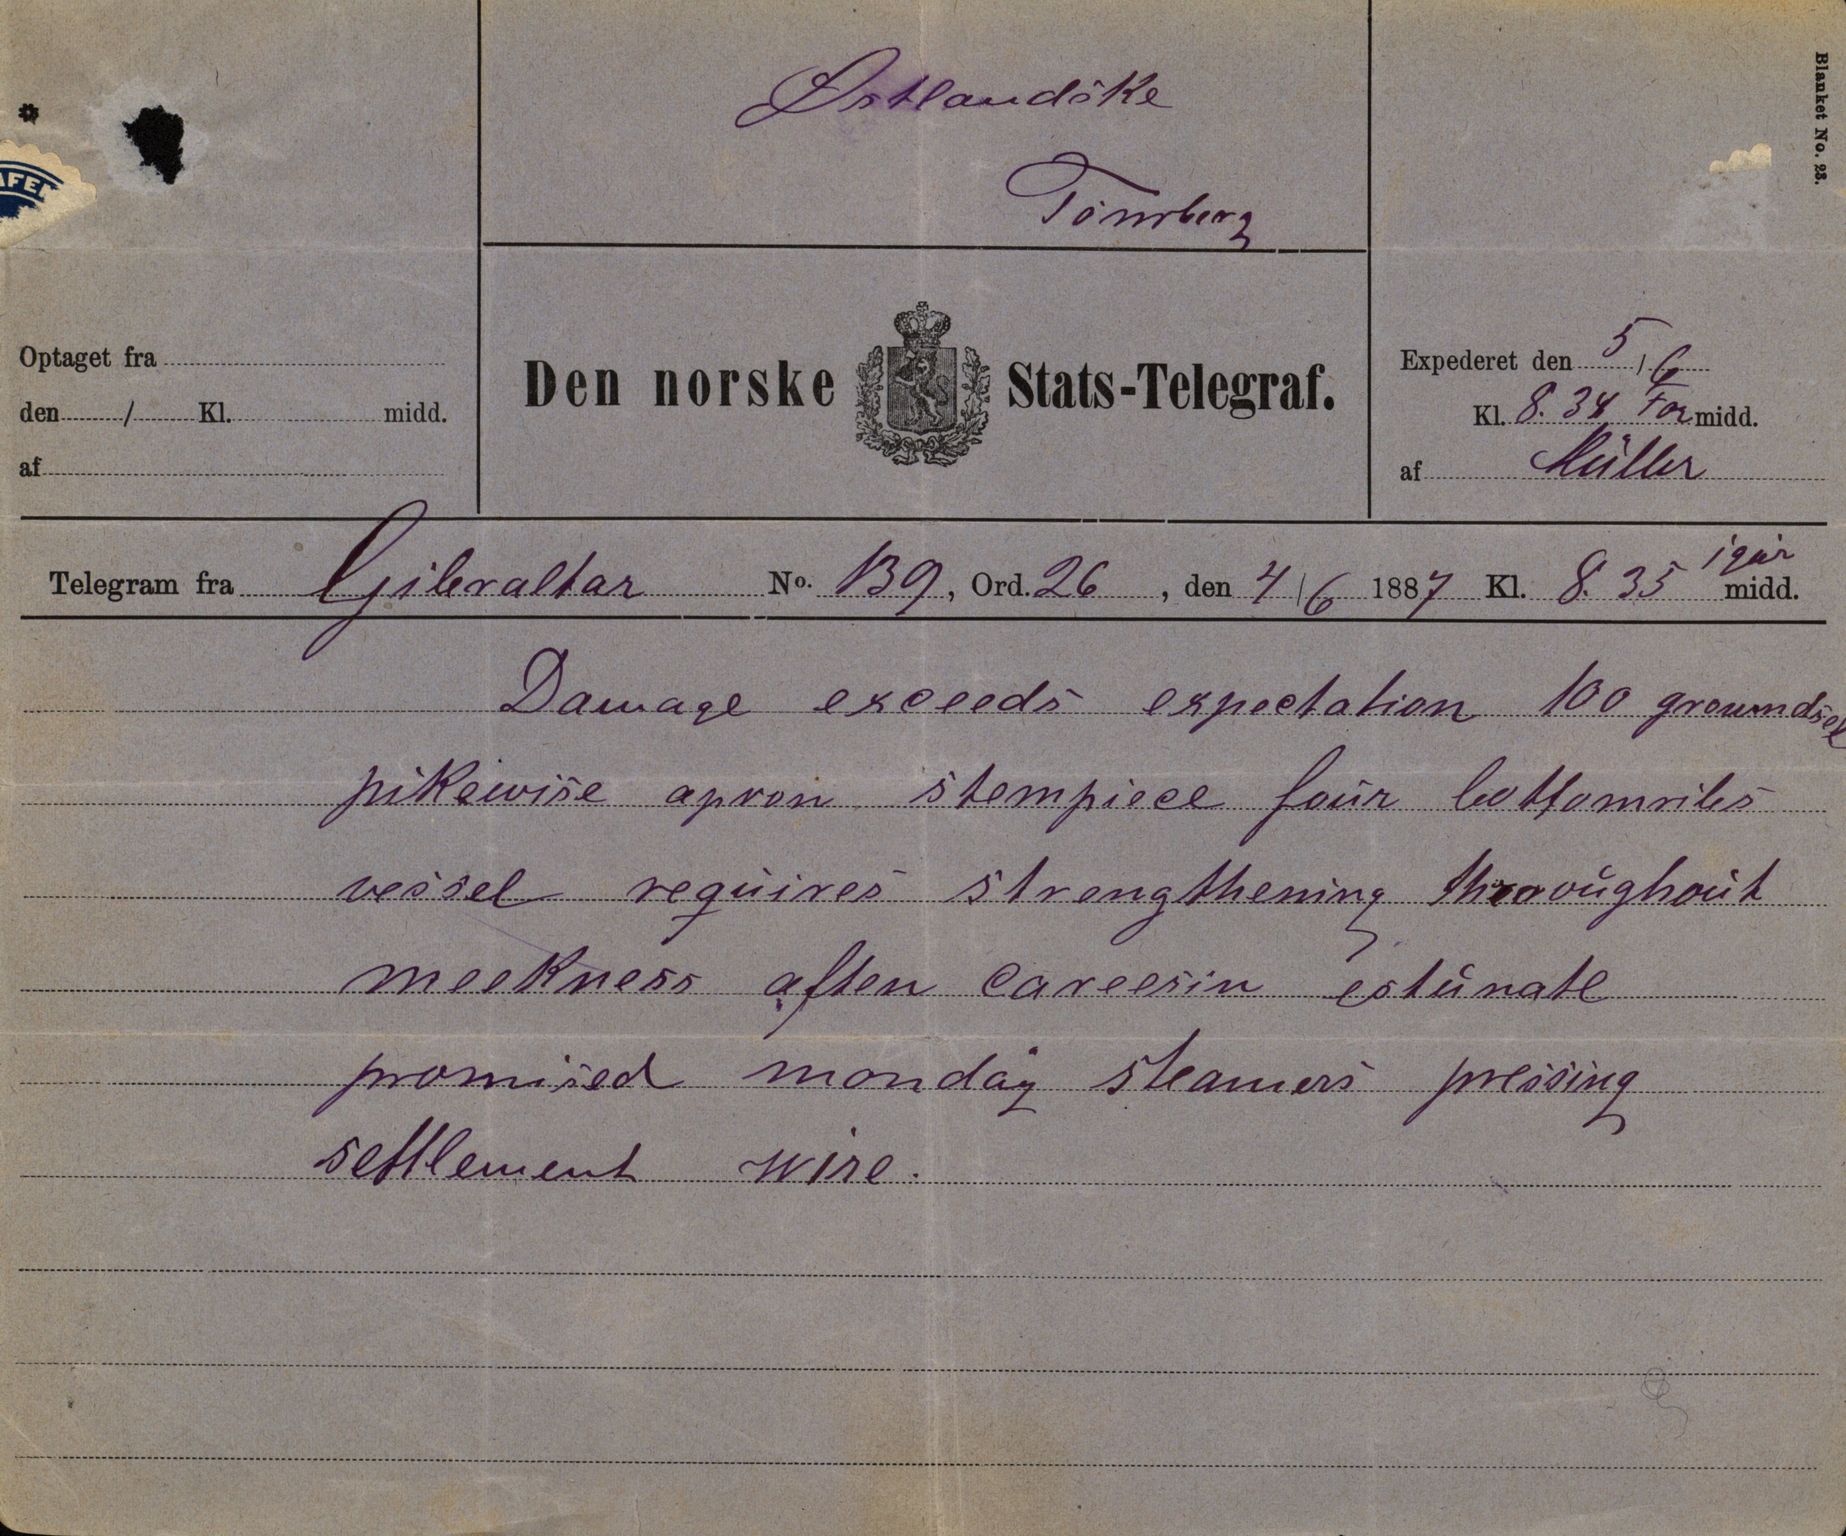 Blanket No. 23.
Østlandske
Tönsberg
Optaget fra
den / Kl. midd.
af
Den norske Stats-Telegraf.
Expederet den 5/6
Kl. 8.34 For midd.
af Müller
Telegram fra Gibraltar No. 139, Ord. 26, den 4/6 1887 Kl. 8.35 igår midd.
Damage exceeds expectation 100 groundsel
pikewise apron stempiece four bottomribs
vessel requires strengthening throughout
meekness aften careesin estimate
promised monday steamers pressing
settlement wire.